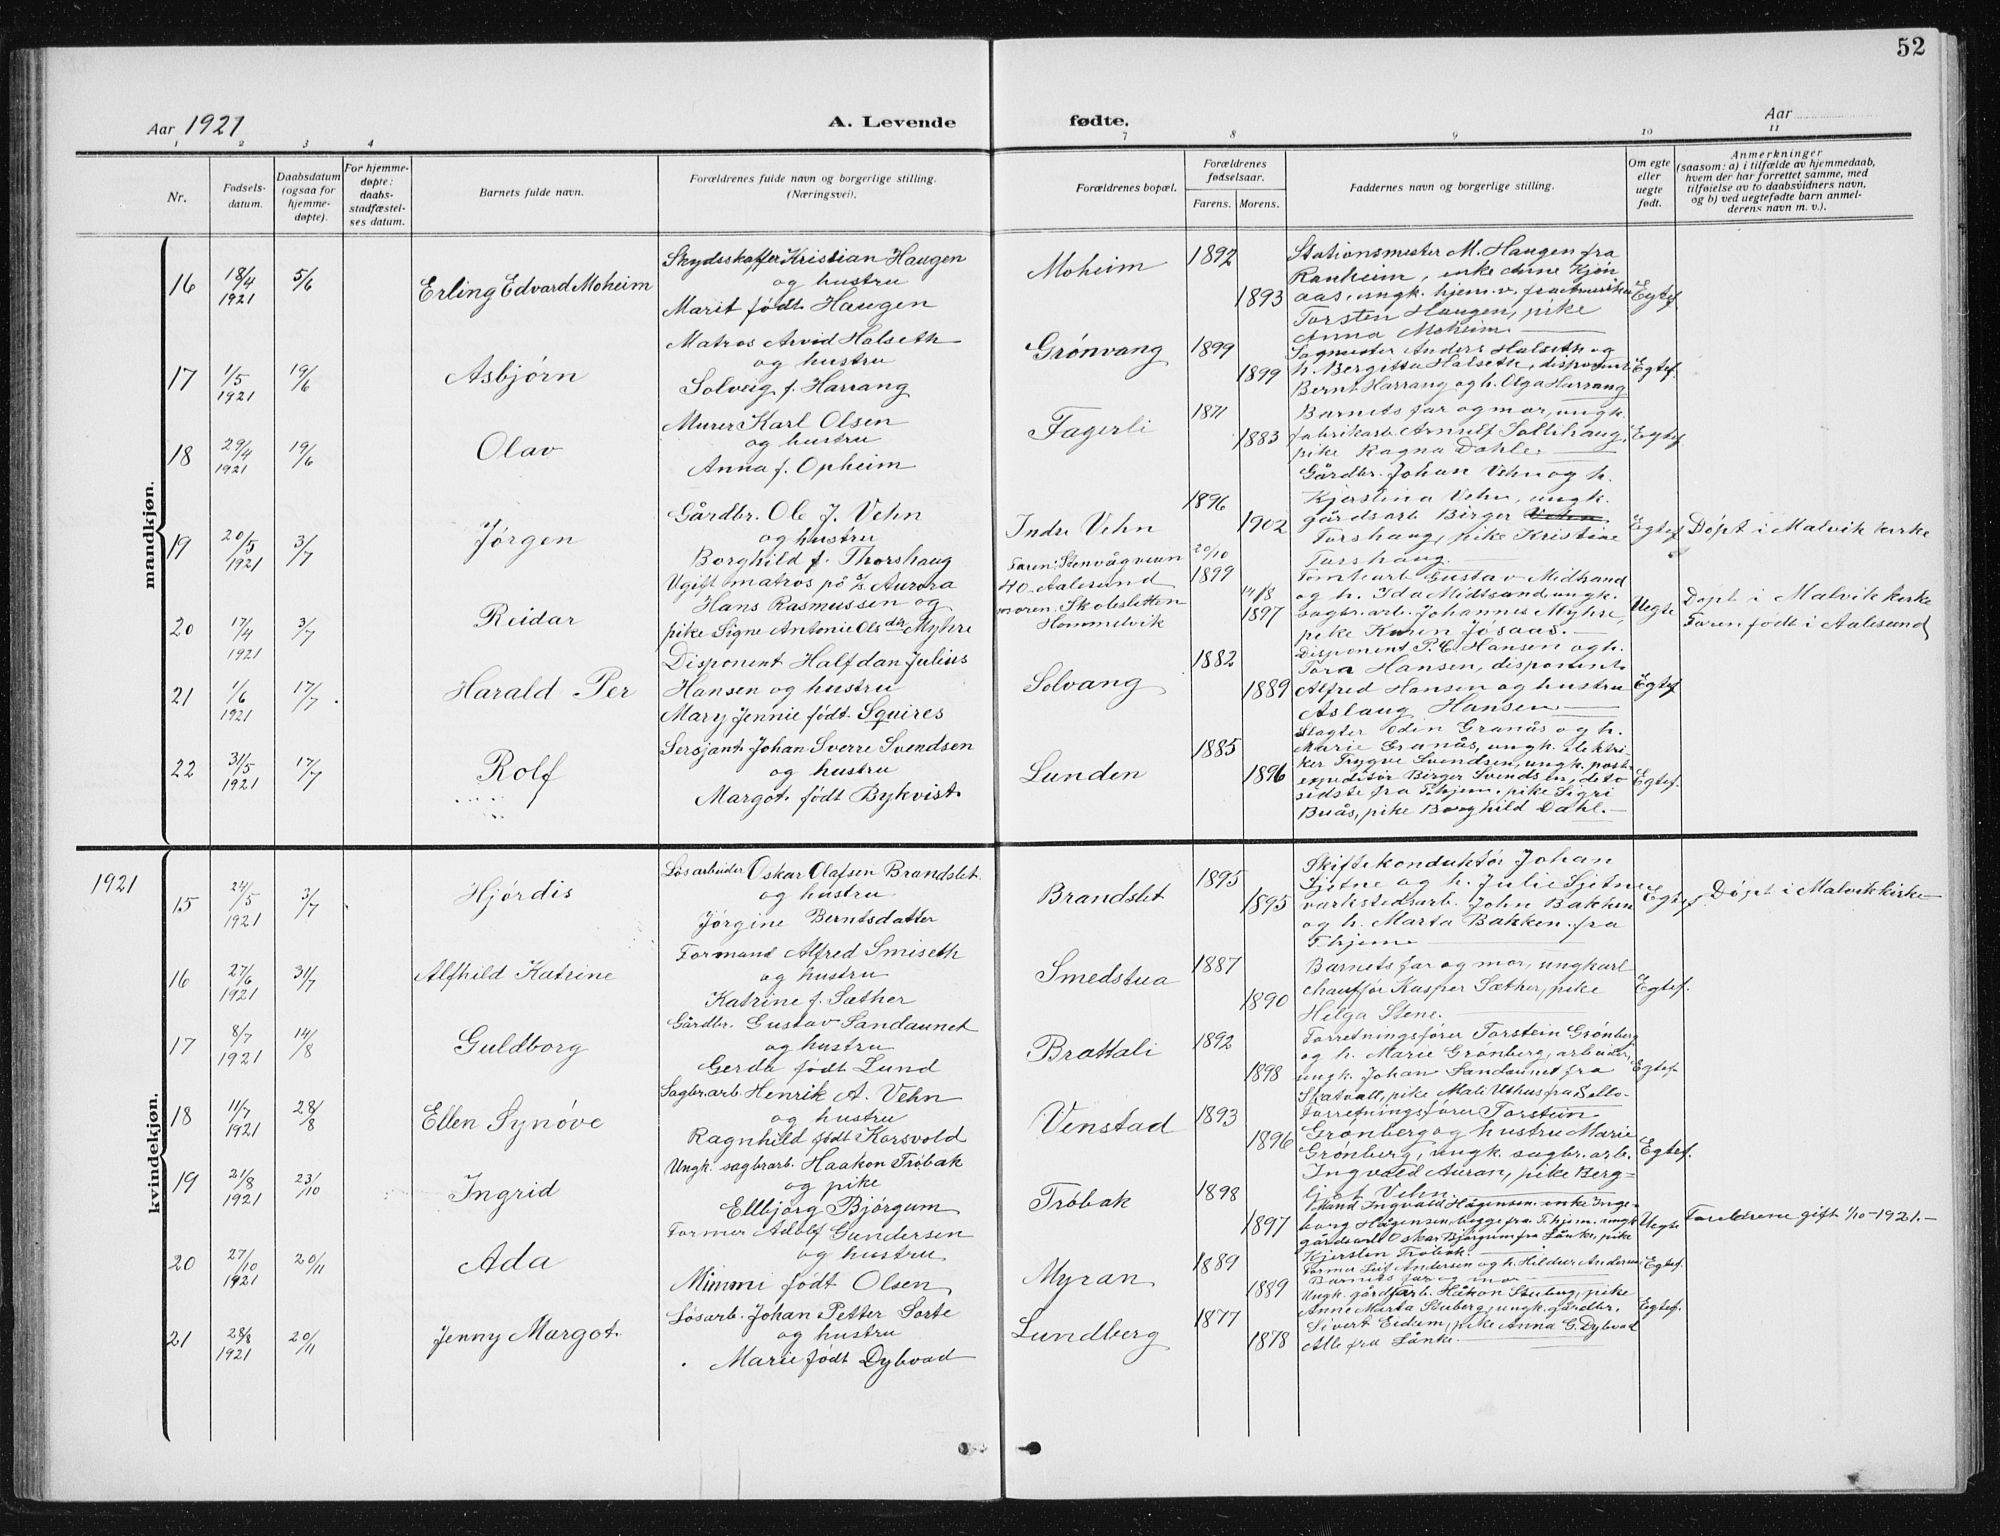 52
Aar 1921
A. Levende fødte.
Aar
1 2 3 4 7 8 9 10 11
Nr.
Fødsels-
datum.
Daabsdatum
(ogsaa for
hjemme-
døpte).
For hjemme-
døpte:
daabs-
stadfæstel-
ses datum.
Barnets fulde navn.
Forældrenes fulde navn og borgerlige stilling.
(Næringsvei).
Forældrenes bopæl.
Forældrenes
fødselsaar.
Farens. Morens.
Faddernes navn og borgerlige stilling.
Om egte
eller
uegte
født.
Anmerkninger
(saasom: a) i tilfælde av hjemmedaab,
hvem der har forrettet samme, med
tilføielse av to daabsvidners navn,
og b) ved uegtefødte barn anmel-
derens navn m. v.).
mandkjøn.
16
18/4
1921
5/6
Erling Edvard Moheim
Skydsskaffer Kristian Haugen
og hustru
Marit født Haugen
Moheim
1892
1893
Stationsmester M. Haugen fra
Ranheim, enke Anne Kjøn
aas, ungk. hjem. v. fra Amerika
Torsten Haugen, pike
Anna Moheim
Egtef.
17
1/5
1921
19/6
Asbjørn
Matros Arvid Halseth
og hustru
Solveig f. Harrang
Grønvang
1899
1899
Sagmester Anders Halseth og
h. Bergitta Halseth, disponent
Bernt Harrang og h. Olga Harrang
Egtef.
18
29/4
1921
19/6
Olav
Murer Karl Olsen
og hustru
Anna f. Opheim
Fagerli
1871
1883
Barnets far og mor, ungk.
fabrikarb. Arnulf Sollihaug,
pike Ragna Dahle.
Egtef.
19
20/5
1921
3/7
Jørgen
Gårdbr. Ole J. Vehn
og hustru
Borghild f. Thorshaug
Indre Vehn
1896
1902
Gårdbr. Johan Vehn og h.
Kjerstina Vehn, ungk.
gårdsarb Birger Vehn
Torshaug, pike Kristine
Torshaug.
Egtef.
Døpt i Malvik kirke
20
17/4
1921
3/7
Reidar
Ugift matros på s/s Aurora
Hans Rasmussen og
pike Signe Antonie Olsdtr Myhre
Faren: Stenvågveien
40. Aalesund
moren. Skolesletten
Hommelvik
20/10
1899
14/8
1897
Tomtearb Gustav Midtsand
og h. Ida Midtsand ungk.
sagbr. arb. Johannes Myhre,
pike Karen Jøsaas.
Uegte
Døpt i Malvik kirke
Faren født i Aalesund
21
1/6
1921
17/7
Harald Per
Disponent Halfdan Julius
Hansen og hustru
Mary Jennie født Squires
Solvang
1882
1889
Disponent P. C. Hansen og h.
Tora Hansen, disponent
Alfred Hansen og hustru
Aslaug Hansen
Egtef.
22
31/5
1921
17/7
Rolf
Sersjant Johan Sverre Svendsen
og hustru
Margot født Bykvist.
Lunden
1885
1896
Slagter Odin Granås og h.
Marie Granås, ungk. elektri-
ker Trygve Svendsen, ungk. post-
expeditør Birger Svendsen, de to
sidste fra T.hjem, pike Sigri
Buås, pike Borghild Dahl.
Egtef.
1921
kvindekjøn.
15
24/5
1921
3/7
Hjørdis
Løsarbeider Oskar Olafsen Brandslet
og hustru
Jørgine Berntsdatter
Brandslet
1895
1895
Skiftekonduktør Johan
Sjetne og h. Julie Sjetne
verkstedsarb. John Bakken
og h. Marta Bakken. fra
T.hjem
Egtef.
Døpt i Malvik kirke
16
27/6
1921
31/7
Alfhild Katrine
Formand Alfred Smiseth
og hustru
Katrine f. Sæther
Smedstua
1887
1890
Barnets far og mor, ungkarl
chauffør Kasper Sæther, pike
Helga Stene.
Egtef.
17
8/7
1921
14/8
Guldborg
Gårdbr. Gustav Sandaunet
og hustru
Gerda født Lund
Brattali
1892
1898
Forretningsfører Torstein Grønberg
og h. Marie Grønberg, arbeider,
ungk. Johan Sandaunet fra
Skatvall, pike Mali Uthus fra Selbo.
Egtef.
18
11/7
1921
28/8
Ellen Synøve
Sagbr.arb. Henrik A. Vehn
og hustru
Ragnhild født Korsvold
Venstad
1893
1896
Forretningsfører Torstein
Grønberg og hustru Marie
Grønberg, ungk. sagbr. arb.
Ingvald Auran, pike Berg-
ljot Vehn.
Egtef.
19
21/8
1921
23/10
Ingrid
Ungk. sagbrarb. Haakon Trøbak
og pike
Ellbjørg Bjørgum
Trøbak
1898
1897
Mand Ingvald Hågensen enke Inge-
borg Hågensen, begge fra T.hjem, ungk
gårdsarb Oskar Bjørgum fra Lånke, pike
Kjersten Trøbak.
Uegte
Foreldrene gift 1/10-1921.-
20
27/10
1921
20/11
Ada
Former Adolf Gundersen
og hustru
Mimmi født Olsen
Myran
1889
1889
Former Leif Andersen og h. Hildur Andersen
Barnets far og mor
Egtef.
21
28/8
1921
20/11
Jenny Margot.
Løsarb. Johan Petter Sorte
og hustru
Marie født Dybvad
Lundberg
1877
1878
Ungk. gårdfarb. Håkon Stuberg, pike
Anne Marta Stuberg, ungk. gårdbr.
Sivert Eidum, pike Anna G. Dybvad
Alle fra Lånke.
Egtef.